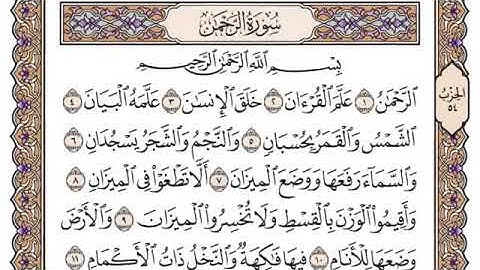 سُورَةُ الرَّحْمَٰن
بِسْمِ اللَّهِ الرَّحْمَٰنِ الرَّحِيمِ
الرَّحْمَٰنُ ١ عَلَّمَ الْقُرْءَانَ ٢ خَلَقَ الْإِنسَٰنَ ٣ عَلَّمَهُ الْبَيَانَ ٤
الشَّمْسُ وَالْقَمَرُ بِحُسْبَانٍ ٥ وَالنَّجْمُ وَالشَّجَرُ يَسْجُدَانِ ٦
وَالسَّمَاءَ رَفَعَهَا وَوَضَعَ الْمِيزَانَ ٧ أَلَّا تَطْغَوْا فِي الْمِيزَانِ ٨
وَأَقِيمُوا الْوَزْنَ بِالْقِسْطِ وَلَا تُخْسِرُوا الْمِيزَانَ ٩ وَالْأَرْضَ
وَضَعَهَا لِلْأَنَامِ ١٠ فِيهَا فَٰكِهَةٌ وَالنَّخْلُ ذَاتُ الْأَكْمَامِ ١١
الحزب
٥٤